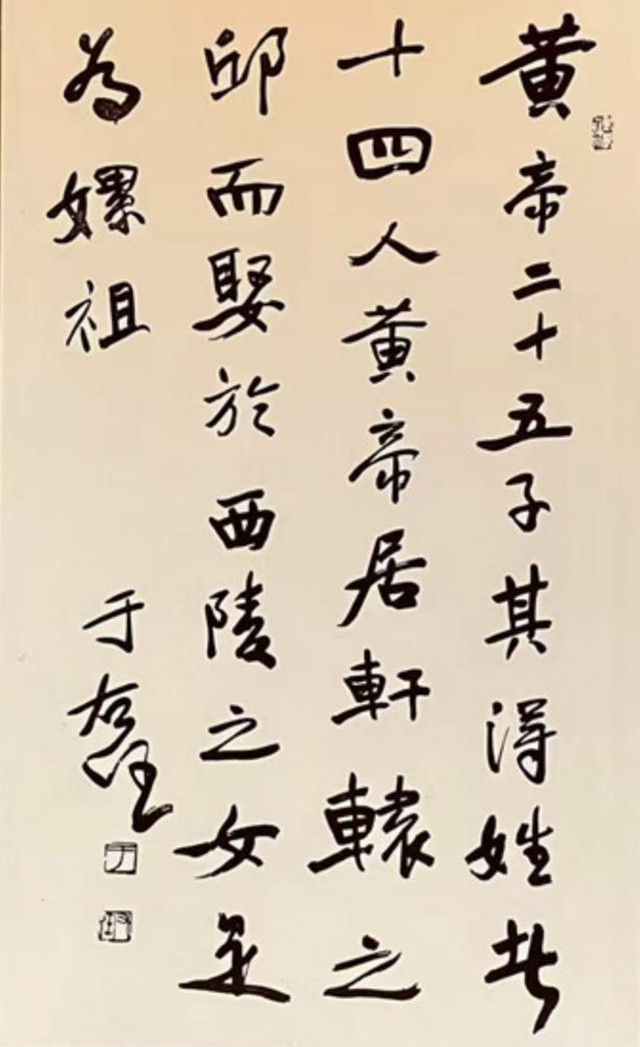 黄帝二十五子其得姓者
十四人黄帝居軒轅之
邱而娶於西陵之女是
為嫘祖
于右任